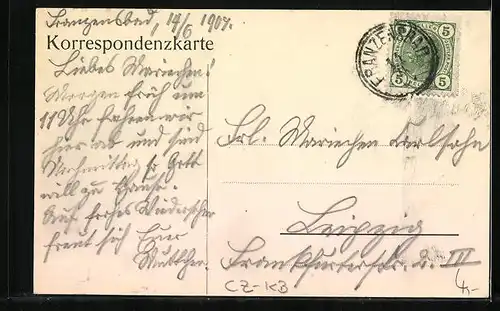 Franzensbad, 14/6 1907.
Korrespondenzkarte
Liebes Mariechen!
Morgen früh um
11 Uhr fahren wir
hier ab und sind
Nachmittag so Gott
will zu Hause.
Auf frohes Wiedersehen
freut sich Euer
Muttchen.
FRANZENSBAD
5 5
Frl. Mariechen Carlsohn
Leipzig
Frankfurterstr. III
CZ-KB
4,-